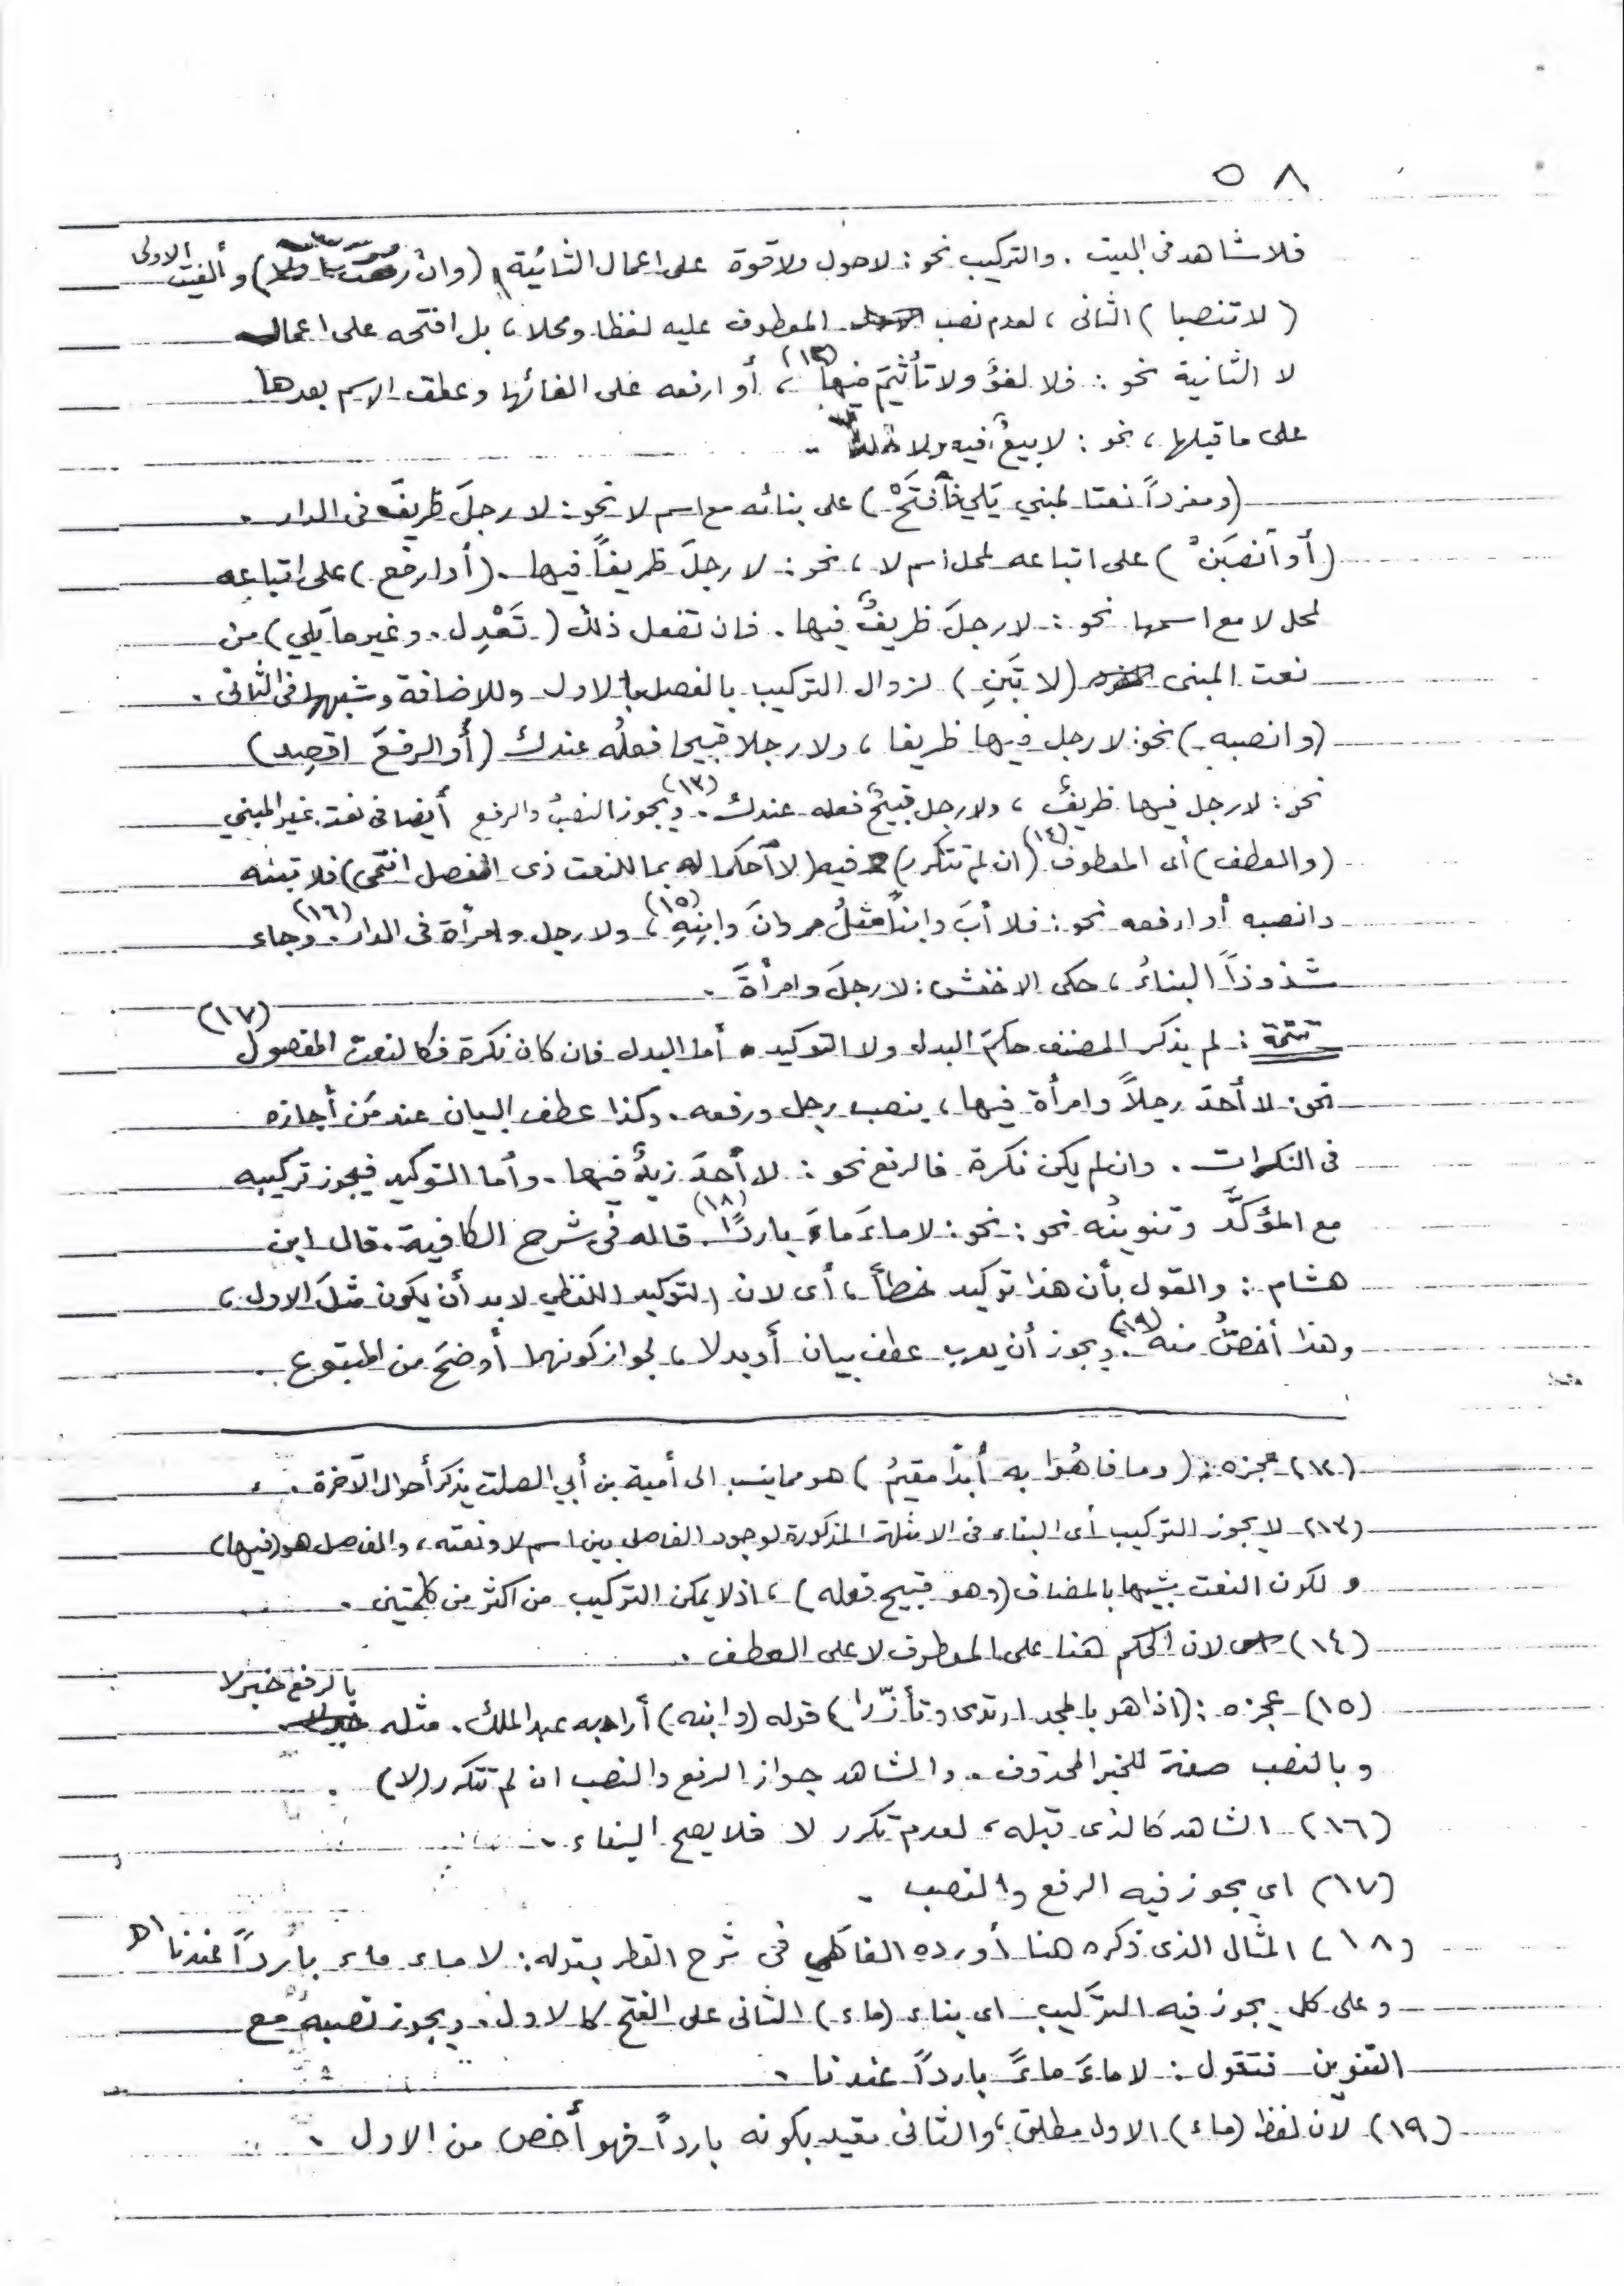 ٥٨
فلا شاهد فى البيت . والتركيب نحو : لا حول ولا قوة على اعمال الثانية (وان رفعت اولا) وألغيت الاولى
( لا تنصبا ) الثانى ، لعدم نصب المعطوف عليه لفظا ومحلا ، بل افتحه على اعمال
لا الثانية نحو : فلا لغوٌ ولا تأثيمَ فيها (١٢) ، أو ارفعه على الغائها وعطف الاسم بعدها
على ما قبلها ، نحو : لا بيعٌ فيه ولا خلةٌ .
(ومفرداً نعتا لمبني يَلي فٱفتَحْ) على بنائه مع اسم لا نحو : لا رجلَ ظريفَ فى الدار .
(أو ٱنصبَنْ) على اتباعه لمحل اسم لا ، نحو : لا رجلَ ظريفاً فيها . (أو ارفع) على اتباعه
لمحل لا مع اسمها نحو : لا رجلَ ظريفٌ فيها . فان تفعل ذلك ( تَعْدِل . وغير ما يَلي) من
نعت المبنى (لا تَبنِ ) لزوال التركيب بالفصل بالاول وللاضافة وشبهها فى الثانى .
(وانصبه) نحو : لا رجل فيها ظريفا ، ولا رجلا قبيحا فعلُه عندك (أو الرفعَ اقصِد)
نحو : لا رجل فيها ظريفٌ ، ولا رجل قبيحٌ فعله عندك . (١٣) ويجوز النصبُ والرفع أيضا فى نعت غير المبني
(والعطف) أى المعطوف (١٤) (ان لم تتكرر) فيه (لا ٱحكما له بما للنعت ذى الفصل انتمى) فلا تبنه
وانصبه أو ارفعه نحو : فلا أبَ وابناً مثلُ مروانَ وابنِهِ (١٥) ، ولا رجل وامرأة فى الدار . (١٦) وجاء
شذوذاً البناءُ ، حكى الاخفش : لا رجلَ وامرأةَ .
تتمة : لم يذكر المصنف حكمَ البدل ولا التوكيد . أما البدل فان كان نكرة فكالنعت المفصول (١٧)
نحو : لا أحدَ رجلاً وامرأة فيها ، ينصب رجل ورفعه . وكذا عطف البيان عند مَن أجازه
فى النكرات . وان لم يكن نكرة فالرفع نحو : لا أحدَ زيدٌ فيها . وأما التوكيد فيجوز تركيبه
مع المؤكَّد وتنوينُه نحو : نحو : لا ماءَ ماءَ باردًا (١٨) . قاله فى شرح الكافية . قال ابن
هشام : والقول بأن هذا توكيد خطأ ، أى لان التوكيد اللفظي لا بد أن يكون مثلَ الاول ،
وهذا أخصُّ منه (١٩) . ويجوز أن يعرب عطف بيان أو بدلا ، لجواز كونهما أوضحَ من المتبوع .
(١٢) عجزه : (وما فاهُوا به أبداً مقيمُ ) هو مما ينسب الى أمية بن أبي الصلت يذكر أحوال الآخرة .
(١٣) لا يجوز التركيب أى البناء فى الامثلة المذكورة لوجود الفاصل بين اسم لا ونعته ، والفاصل هو (فيها)
ولكون النعت شبيها بالمضاف (وهو قبيح فعله) ، اذ لا يمكن التركيب من اكثر من كلمتين .
(١٤) لان الحكم هنا على المعطوف لا على العطف .
(١٥) عجزه : (اذا هو بالمجد ارتدى وتأزّرا) قوله (وابنه) أراد به عبد الملك . مثله بالرفع خبر لا
وبالنصب صفة للخبر المحذوف . والشاهد جواز الرفع والنصب ان لم تتكرر (لا) .
(١٦) الشاهد كالذى قبله ، لعدم تكرر لا فلا يصح البناء .
(١٧) اى يجوز فيه الرفع والنصب .
(١٨) المثال الذى ذكره هنا أورده الفاكهي فى شرح القطر بقوله : لا ماء ماء بارداً عندنا اھ
وعلى كل يجوز فيه التركيب اى بناء (ماء) الثانى على الفتح كالاول . ويجوز نصبه مع
التنوين فتقول : لا ماءَ ماءً بارداً عندنا .
(١٩) لان لفظ (ماء) الاول مطلق ، والثانى مقيد بكونه بارداً فهو أخص من الاول .